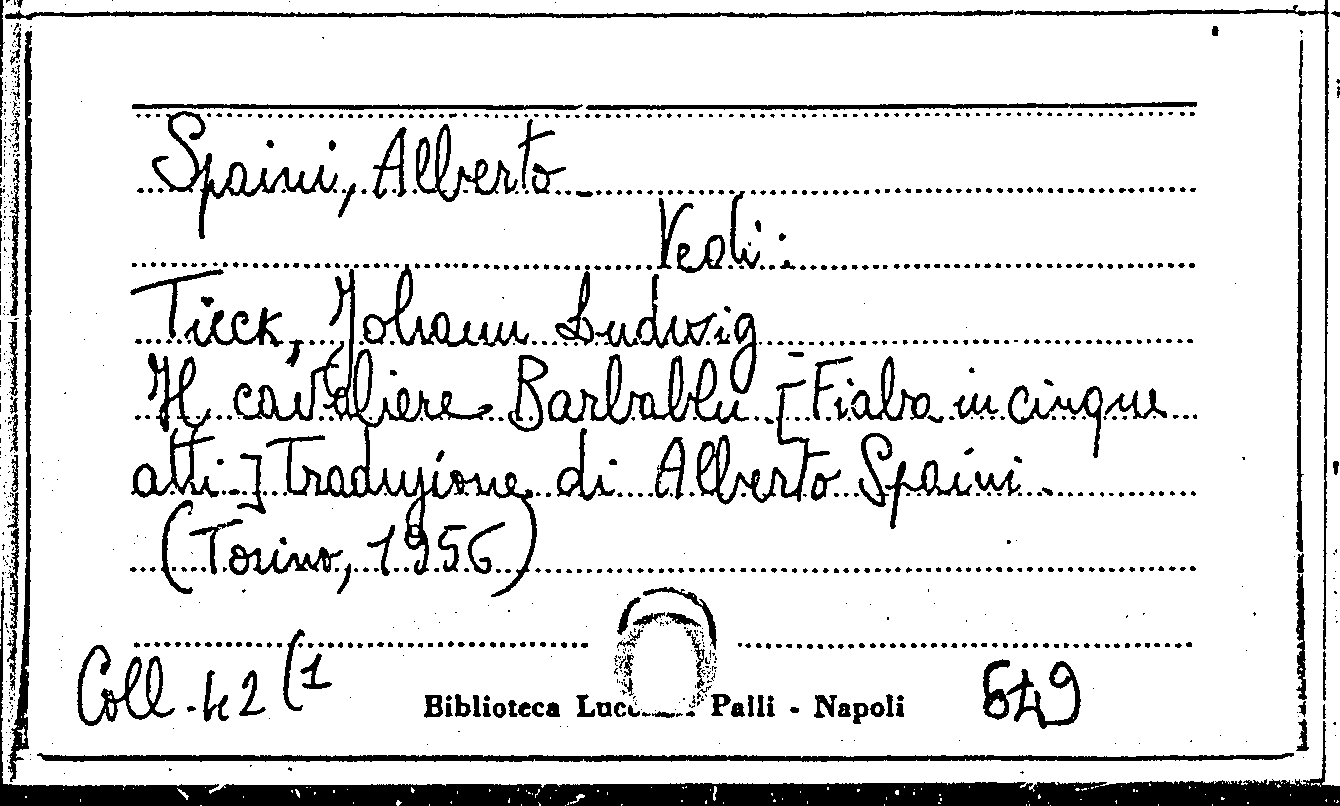 Spaini, Alberto -
Vedi:
Tieck, Johann Ludwig
Il cavaliere Barbablu. [Fiaba in cinque
atti.] Traduzione di Alberto Spaini.
(Torino, 1956)
Coll. 42 (1
Biblioteca Palli - Napoli
649